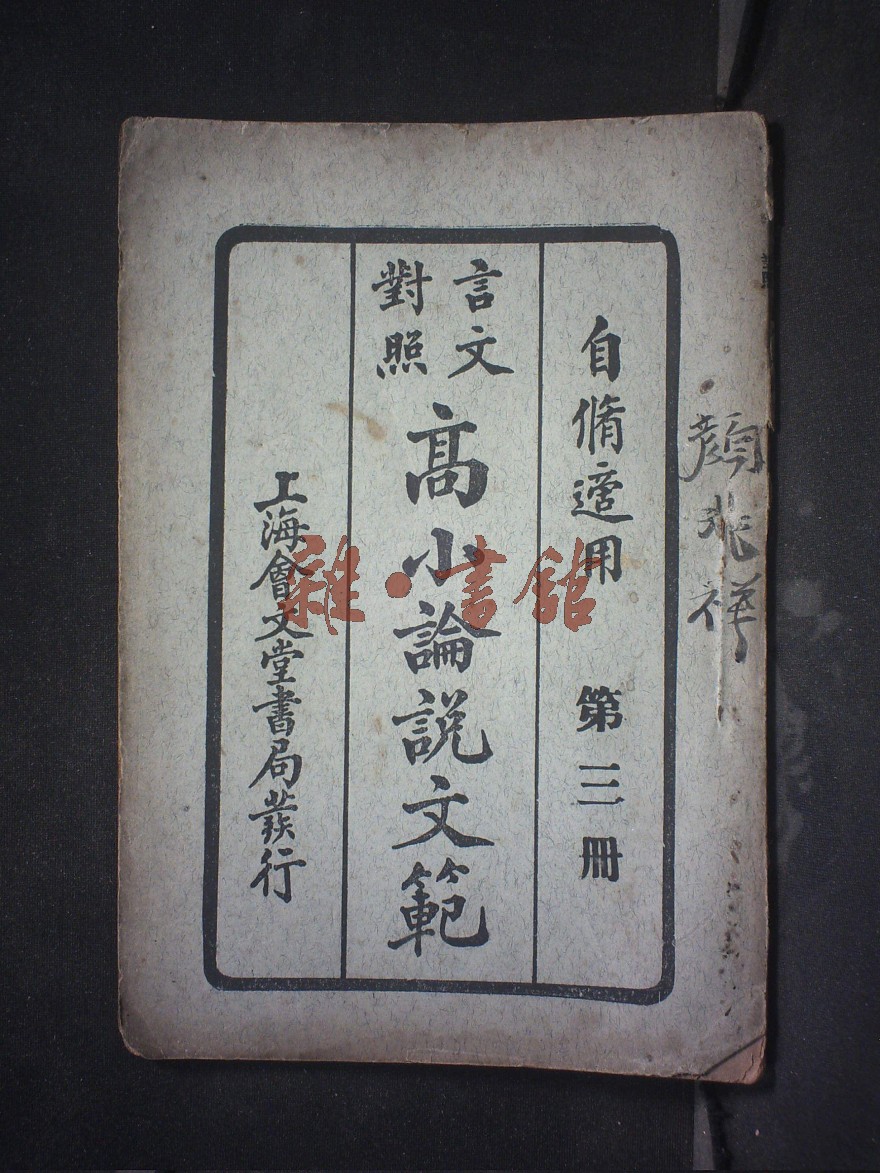 自脩適用
第三冊
言文
對照
高小論說文範
上海會文堂書局發行
顏兆祥
雜·書館